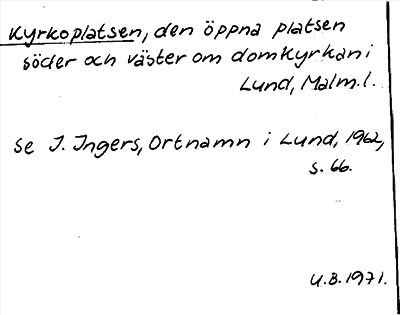 Kyrkoplatsen, den öppna platsen
söder och väster om domkyrkan i
Lund, Malm.l.
se J. Ingers, Ortnamn i Lund, 1962,
s. 66.
U.B. 1971.